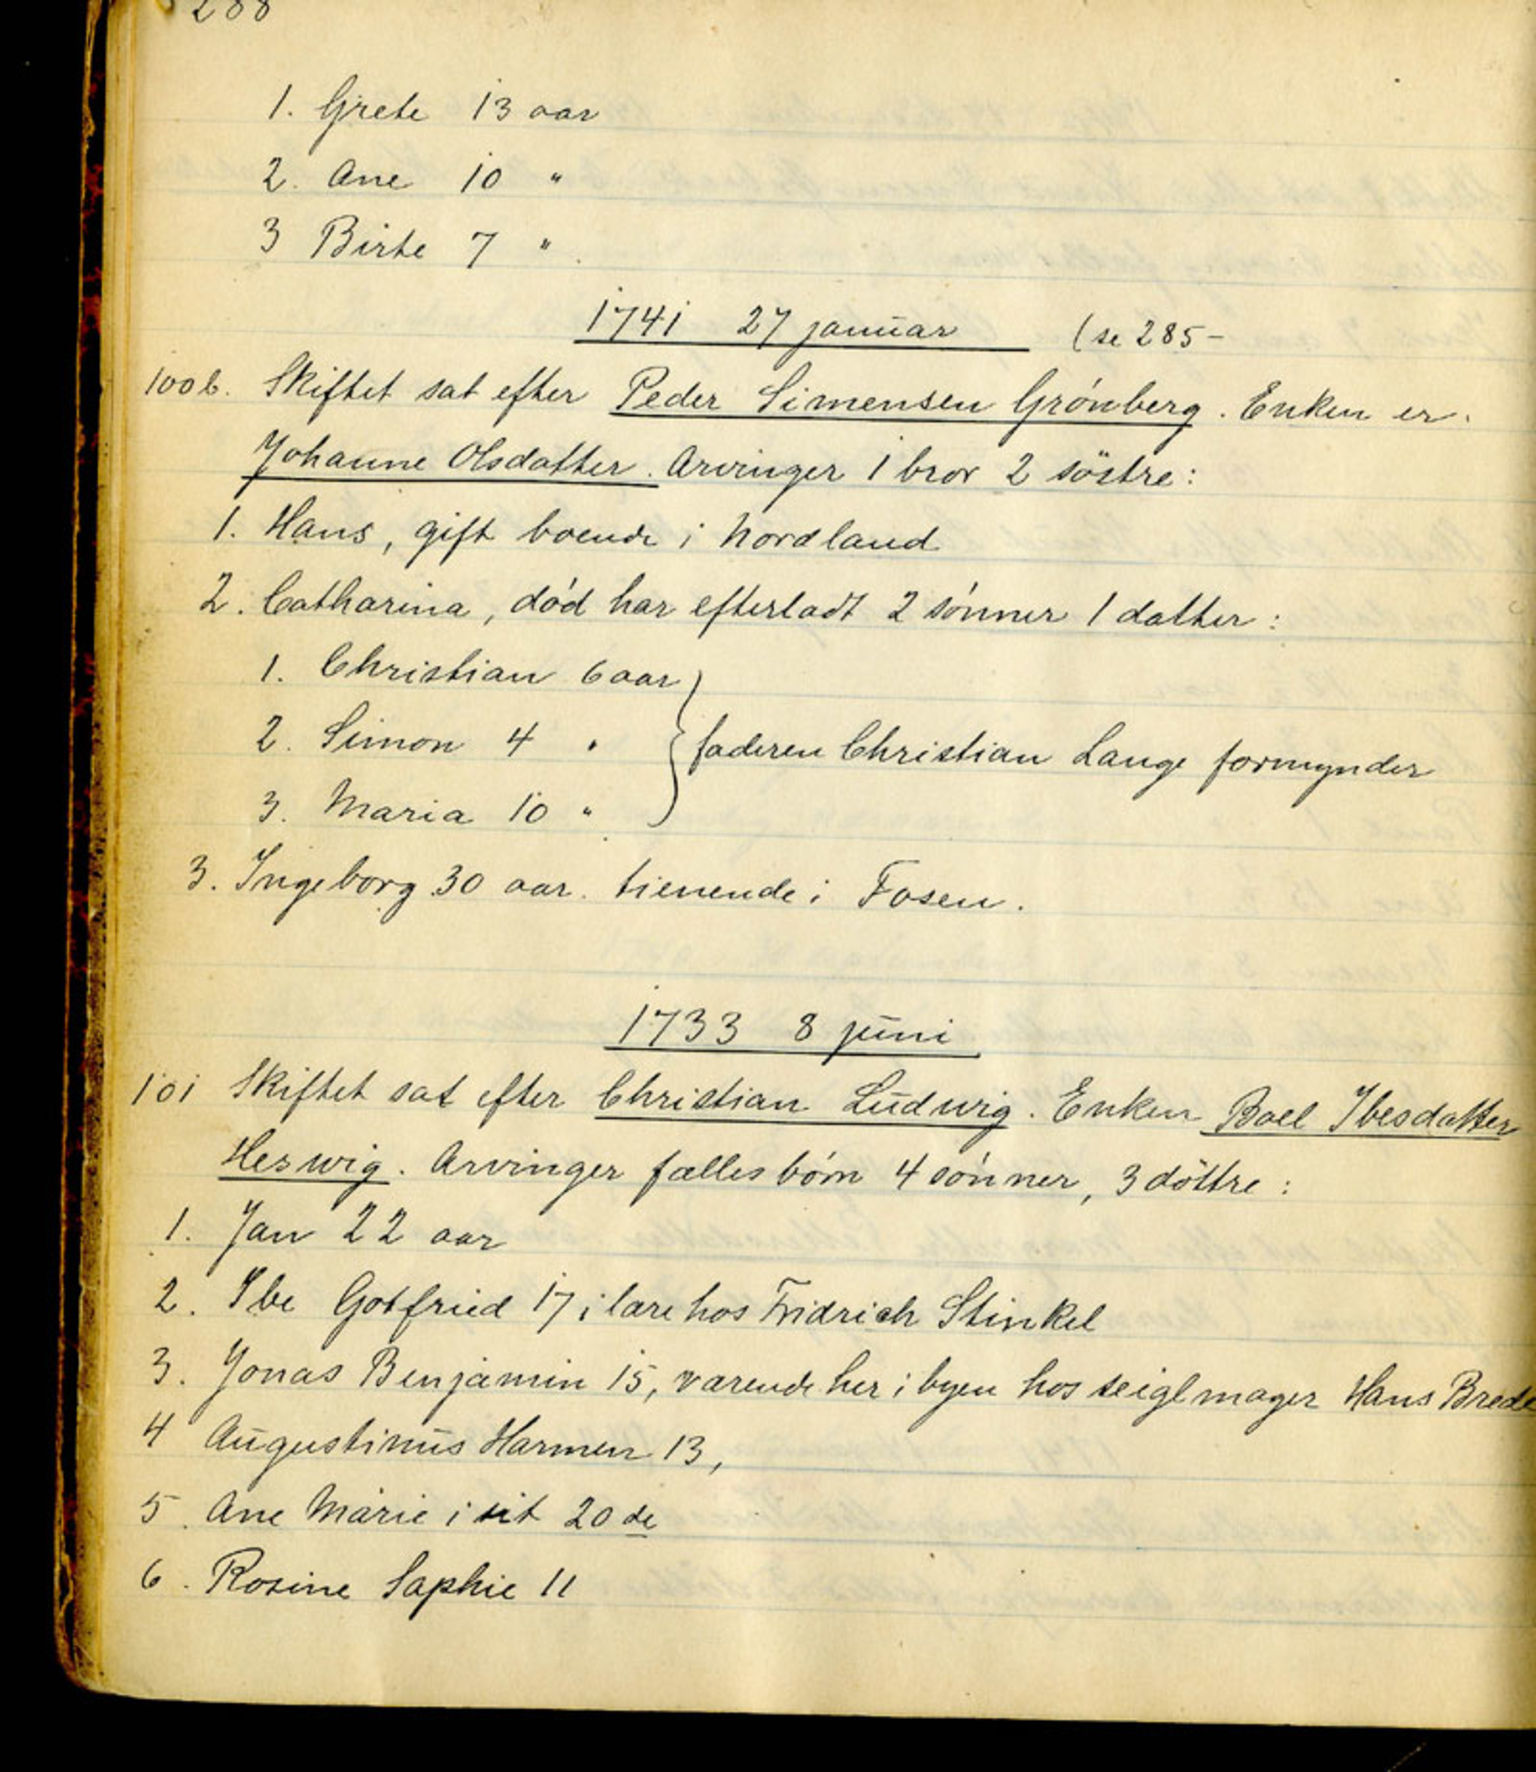 288
1. Grete 13 aar
2. Ane 10 "
3 Birte 7 "
1741 27 januar (se 285-
100b. Skiftet sat efter Peder Simensen Grønberg. Enken er
Johanne Olsdatter. Arvinger 1 bror 2 söstre:
1. Hans, gift boende i Nordland
2. Catharina, død har efterladt 2 sønner 1 datter:
1. Christian 6 aar
2. Simon 4 "
faderen Christian Lange formynder
3. Maria 10 "
3. Ingeborg 30 aar. tienende i Fosen.
1733 8 juni
101 Skiftet sat efter Christian Ludwig. Enken Boel Ibesdatter
Herwig. Arvinger fælles børn 4 sønner, 3 döttre:
1. Jan 22 aar
2. Ibe Gotfried 17 i lære hos Fridrich Stinkel
3. Jonas Benjamin 15, værende her i byen hos seiglmager Hans Brede
4 Augustinus Harmen 13,
5. Ane Marie i sit 20de
6. Rosine Saphie 11